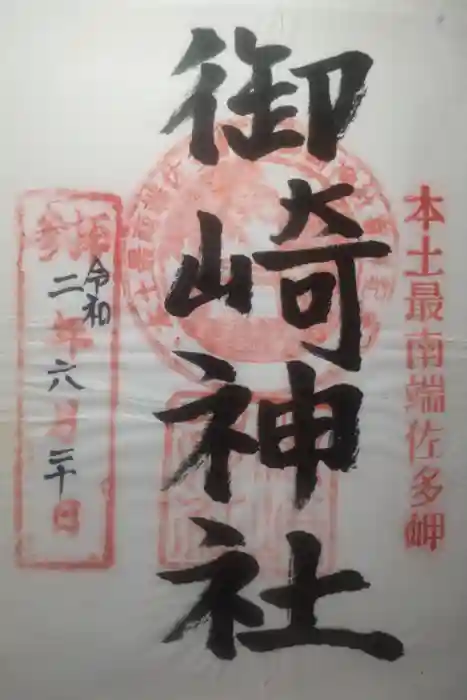 本土最南端佐多岬
御崎神社
参拝
令和
二年六月三十日